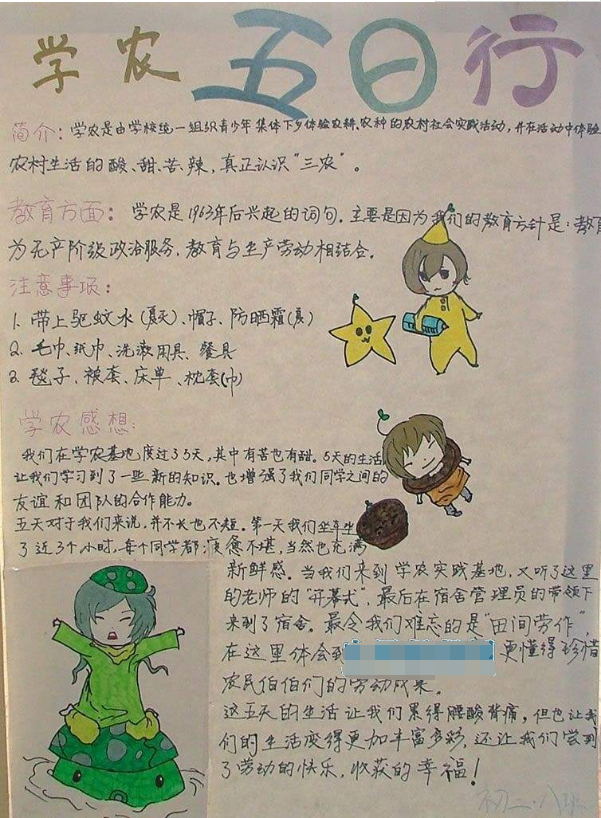 学农五日行
简介：学农是由学校统一组织青少年集体下乡体验农耕、农种的农村社会实践活动，并在活动中体验
农村生活的酸、甜、苦、辣，真正认识“三农”。
教育方面：学农是1963年后兴起的词句。主要是因为我们的教育方针是：教育
为无产阶级政治服务，教育与生产劳动相结合。
注意事项：
1. 带上驱蚊水（夏天）、帽子、防晒霜（夏）
2. 毛巾、纸巾、洗漱用具、餐具
3. 毯子、被套、床单、枕套（巾）
学农感想：
我们在学农基地度过了5天，其中有苦也有甜。5天的生活
让我们学习到了一些新的知识。也增强了我们同学之间的
友谊和团队的合作能力。
五天对于我们来说，并不长也不短。第一天我们坐车坐
了近3个小时，每个同学都疲惫不堪，当然也充满
新鲜感。当我们来到学农实践基地，又听了这里
的老师的“开幕式”，最后在宿舍管理员的带领下
来到了宿舍。最令我们难忘的是“田间劳作”
在这里体会到 更懂得珍惜
农民伯伯们的劳动成果。
这五天的生活让我们累得腰酸背痛，但也让我
们的生活变得更加丰富多彩，还让我们尝到
了劳动的快乐，收获的幸福！
初二·八班